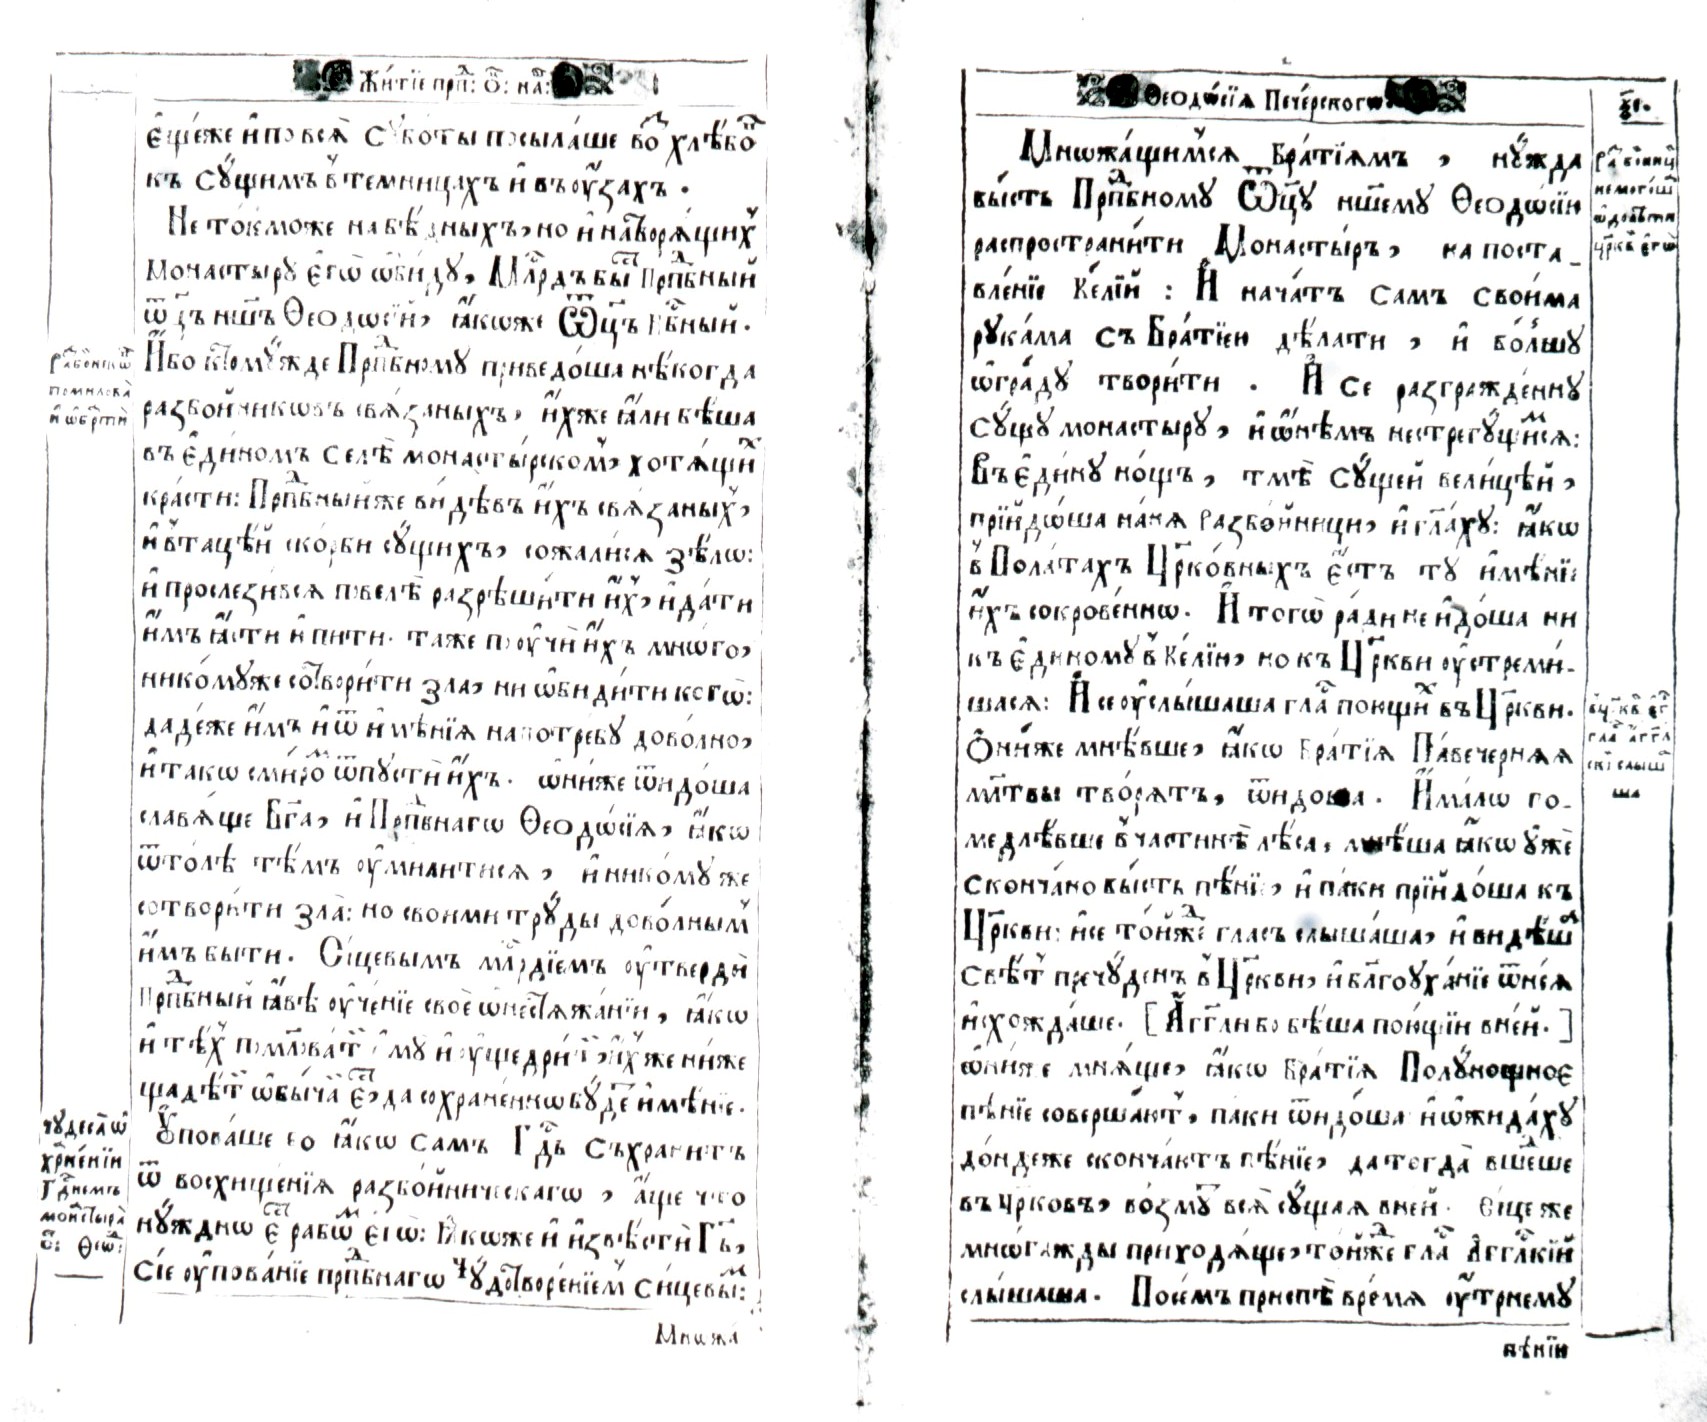 Житїе прп: Ѻ: на:
Еще́же и҆ по всѧ̀ Сꙋбѡты посыла́ше во́ хлѣ́бѡ
къ Сꙋ́щимъ в̾ темницахъ и҆ въ ѹ҆́захъ.
Не то́кможе на бѣ́дныхъ, но и҆ на творѧ́щих̾
Монастырꙋ є҆гѡ̀ ѡ҆би́дꙋ, Млⷭ҇рдъ бы́ Прпⷣбный
ѿцъ нш҃ъ Ѳеодѡсїй, ꙗ҆́коже Ѿц҃ъ Нбⷭ҇ный.
И҆́бо к томꙋ́жде Прпⷣбномꙋ приведо́ша нѣ́когда
разбо́йникѡвъ свѧ́заныхъ, и҆́хже ꙗ҆́ли бѣ́ша
въ є҆ди́номъ Селѣ̀ монасты́рском̾, хотѧ́щихъ
кра́сти: Прпⷣбный же ви́дѣвъ и҆́хъ свѧ́заных̾,
и҆ в̾ тацѣ́й ско́рби сꙋ́щихъ, сожали́сѧ ѕѣлѡ̀:
и҆ прослези́всѧ повелѣ̀ разрѣши́ти и҆́х̾, и҆ да́ти
и҆́мъ ꙗ҆́сти и҆ пи́ти. таже поѹчѝ и҆́хъ мнѡ́го,
нико́мꙋже сотвори́ти зла̀, ни ѡ҆би́дити когѡ̀:
даде́же и҆́мъ и҆ ѿ и҆мѣ́нїѧ на потре́бꙋ дово́лно,
и҆ такѡ сми́рно ѿпꙋстѝ и҆́хъ. ѡ҆ни́же ѿидо́ша
славѧ́ще Бг҃а, и҆ Прпⷣбнагѡ Ѳеодѡ́сїѧ, ꙗ҆́кѡ
ѿто́лѣ тѣ́мъ ѹ҆милитисѧ, и҆ нико́мꙋ же
сотвори́ти зла̀: но своими трꙋ́ды дово́лным̾
и҆́мъ быти. Си́цевымъ млⷭ҇рдїемъ ѹ҆твердѝ
Прпⷣбный ꙗ҆́вѣ ѹ҆че́нїе своѐ ѡ҆ нестѧжа́нїи, ꙗ҆́кѡ
и҆ тѣ́х̾ помиловати є҆мꙋ̀ и҆ ѹ҆щедри́ти, и҆́х̾же ни́же
щадѣ́ти ѡ҆бы́чай є҆́сть, да сохране́ннѡ бꙋ́дет и҆мѣ́нїе.
Ѹ҆пова́ше бо ꙗ҆́кѡ Самъ Гдⷭ҇ь Съхрани́тъ
ѿ восхище́нїѧ разбо́йническагѡ, а҆́ще что
нꙋ́жднѡ є҆́сть рабѡ́м є҆гѡ̀: Ꙗ҆́коже и҆ и҆звѣстѝ Гдⷭ҇ь,
Сїе ѹ҆пова́нїе прпⷣбнагѡ Чꙋ́дотворе́нїем̾ Си́цевы́м:
Мнѡжа́
Разбо́йникѡ
помилова
и҆ ѡ҆брати
чꙋдеса̀ ѡ҆
хране́нїи
Гдⷭ҇немъ
монастырѧ̀
ѻ҃: Ѳеѡ:
Ѳеодѡ́сїѧ Пече́рскогѡ.
Мнѡжа́щимсѧ Бра́тїѧмъ, нꙋ́жда
бы́сть Прпⷣбномꙋ Ѿцꙋ̀ нш҃емꙋ Ѳеодѡ́сїю
распространи́ти Монасты́ръ, на поста_
вле́нїе Ке́лїй: И҆ нача́тъ Самъ Свои́ма
рꙋка́ма Съ Бра́тїею дѣ́лати, и҆ бо́лшꙋ
ѡ҆гра́дꙋ твори́ти. И҆ се разгражде́ннꙋ
Сꙋ́щꙋ монастырꙋ, и҆ ѡ҆нѣ́мъ нестрегꙋ́щимсѧ:
Въ є҆ди́нꙋ но́щъ, тмѣ̀ Сꙋ́щей вели́цѣй,
прїйдо́ша на́нѧ Разбо́йници, и҆ гл҃ахꙋ: ꙗ҆́кѡ
в̾ Пола́тахъ Црⷪ҇ко́вныхъ є҆́стъ тꙋ и҆мѣ́нїе
и҆́хъ сокрове́ннѡ. И҆ тогѡ̀ ра́ди не и҆до́ша ни
къ є҆ди́номꙋ в̾ Ке́лїю, но къ Цр҃кви ѹ҆стреми́_
шасѧ: И҆ се ѹ҆слы́шаша гла́ пою́щих въ Цр҃кви.
Ѻ҆ни́же мнѣ́вше, ꙗ҆́кѡ Бра́тїѧ Па́вечернѧѧ
мл҃твы творѧ́тъ, ѿидоша. И҆ ма́лѡ по_
медлѣ́вше в̾ частинѣ̀ лѣ́са, мнѣ́ша ꙗ҆́кѡ ѹ҆жѐ
Сконча́но бы́сть пѣ́нїе, и҆ па́ки прїйдо́ша къ
Цр҃кви: и҆ се то́йже гласъ слы́шаша, и҆ ви́дѣша
Свѣ́тъ пречꙋ́денъ в̾ Цр҃кви, и҆ бл҃гоꙋха́нїе ѿ неѧ̀
и҆схожда́ше. [А҆́гг҃ли бо бѣ́ша пою́щїи в не́й.]
ѡ҆ни́же мнѧ́ще, ꙗ҆́кѡ Бра́тїѧ Полꙋ́нощное
пѣ́нїе соверша́ютъ, па́ки ѿидо́ша и҆ ѡ҆жида́хꙋ
до́ндеже сконча́ютъ пѣ́нїе, да тогда̀ вше́дше
въ Цр҃ковъ, во́змꙋт всѧ̀ сꙋ́щаѧ в не́й. Си́це же
мнѡ́гажды приходѧ́ще, то́йже гла́ А҆гг҃лскїй
слы́шаша. Посе́мъ приспѣ̀ вре́мѧ ѹ҆́трнемꙋ
пѣ́нїю
Разбо́йници
не мого́ша
ѡ҆добѣ́ти
цр҃кви є҆гѡ̀
слыш
ша